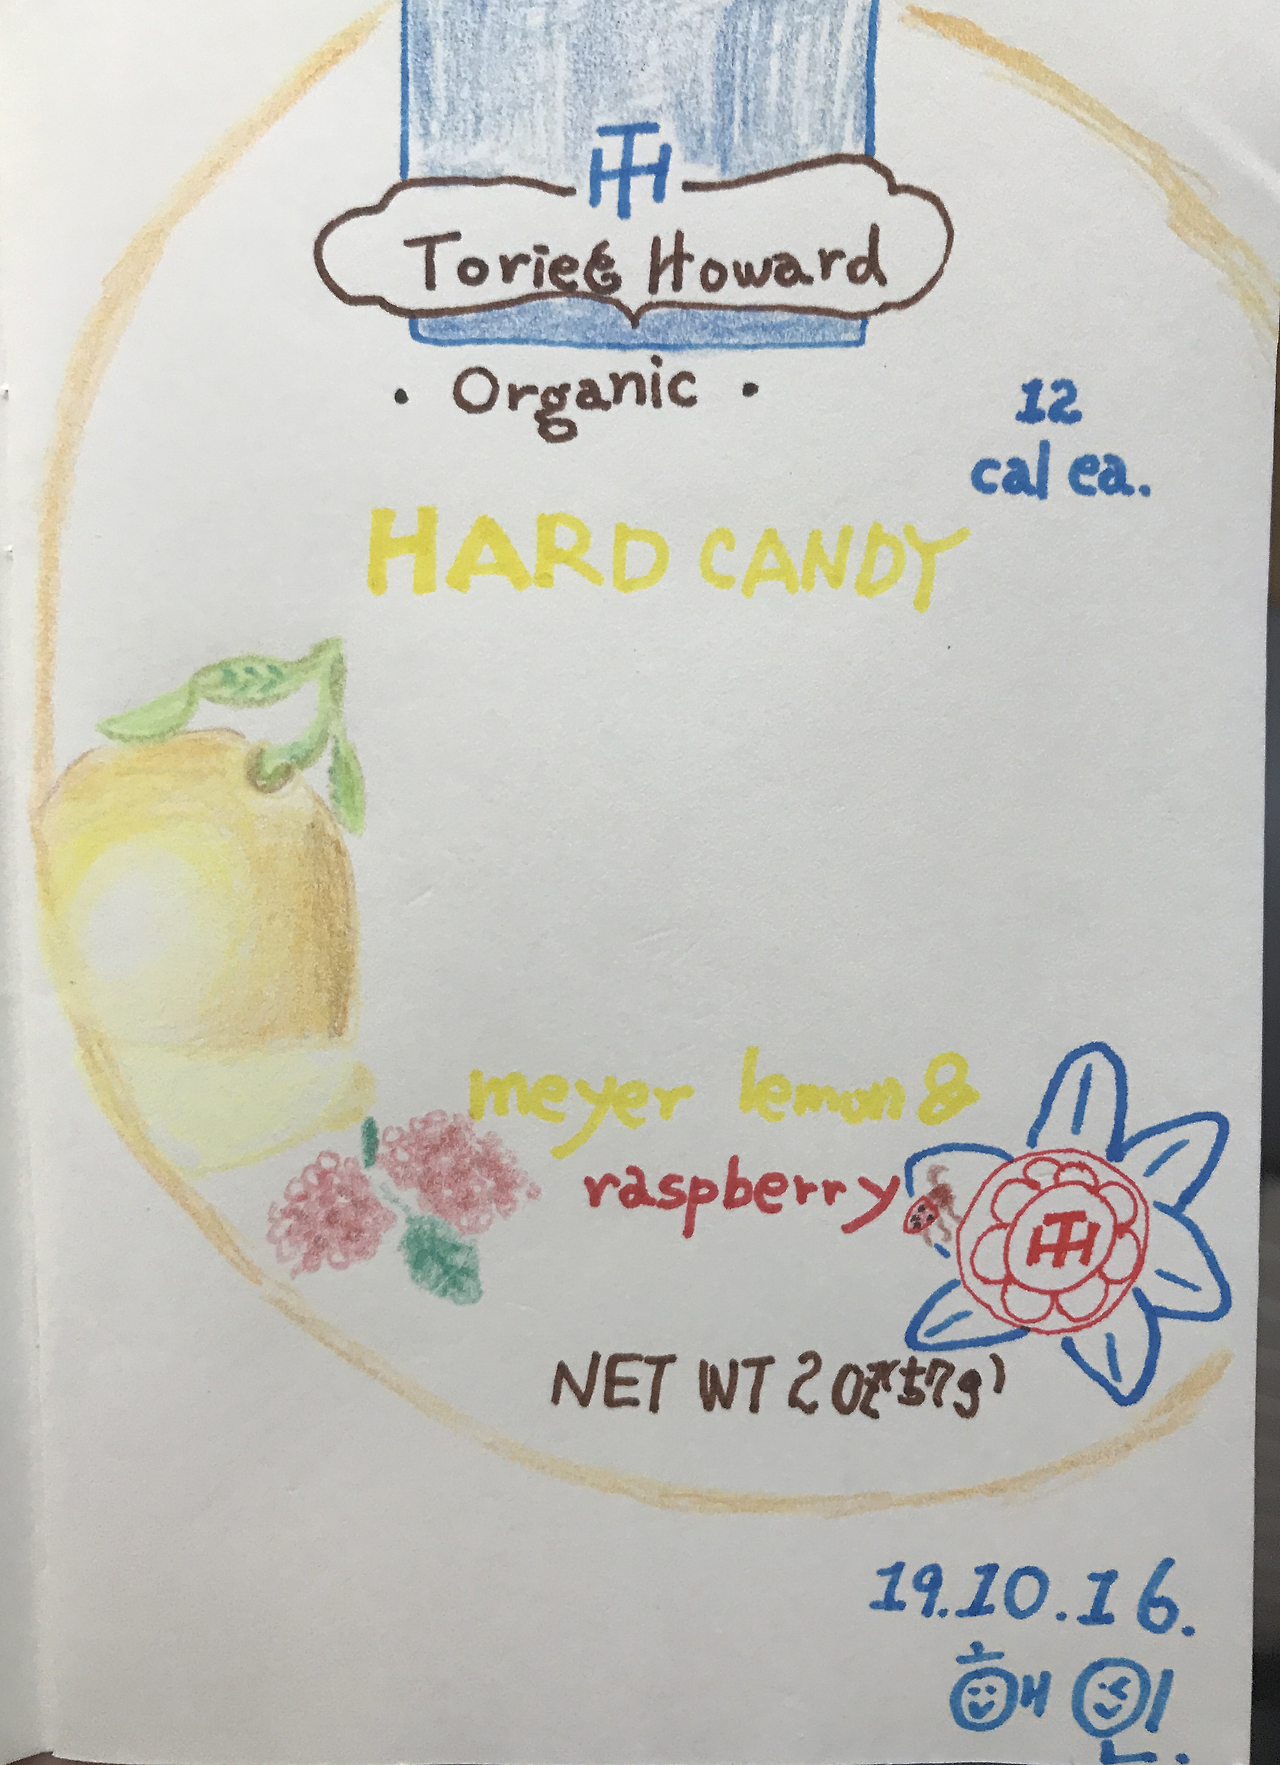 TH
Torie & Howard
· Organic ·
12
cal ea.
HARD CANDY
meyer lemon &
raspberry
TH
NET WT 2 oz (57g)
19.10.16.
해인.